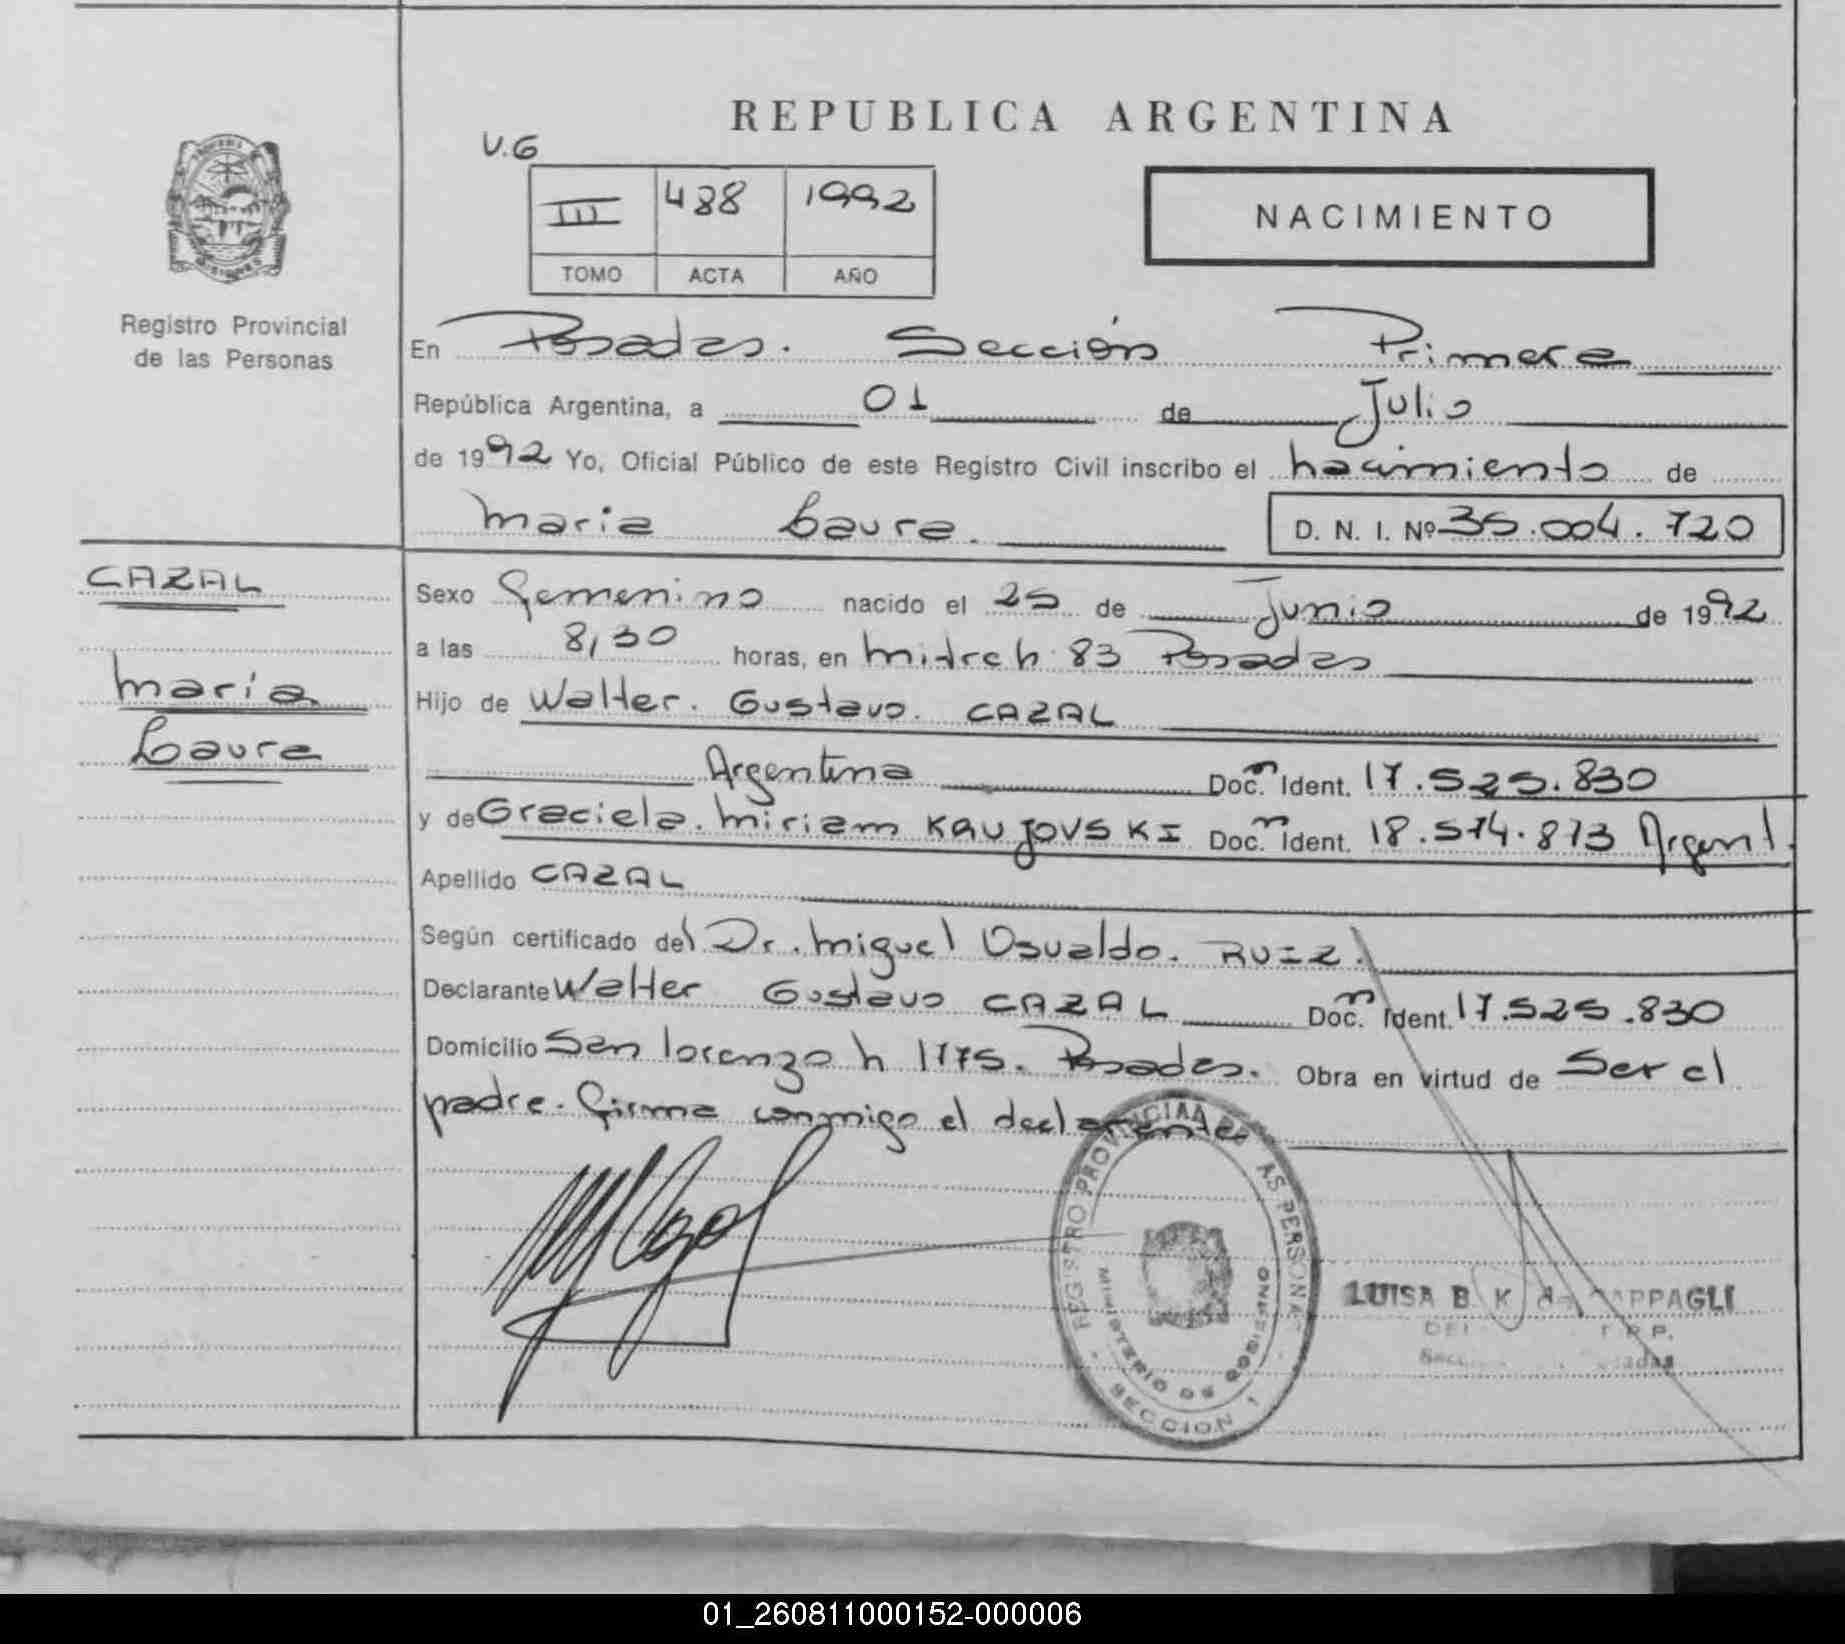 REPUBLICA ARGENTINA
V.G
III 488 1992
TOMO ACTA AÑO
NACIMIENTO
Registro Provincial
de las Personas
En Posadas. Sección Primera
República Argentina, a 01 de Julio
de 1992 Yo, Oficial Público de este Registro Civil inscribo el nacimiento de
Maria Laura. D. N. I. Nº 35.004.720
CAZAL
María
Laura
Sexo Femenino nacido el 25 de Junio de 1992
a las 8,30 horas, en Mitre h 83 Posadas
Hijo de Walter. Gustavo. CAZAL
Argentina Doc. Ident. 17.525.830
y de Graciela. Miriam KAUJOVSKI Doc. Ident. 18.574.873 Argent.
Apellido CAZAL
Según certificado del Dr. Miguel Osvaldo. RUIZ.
Declarante Walter Gustavo CAZAL Doc. Ident. 17.525.830
Domicilio San lorenzo h 1175. Posadas. Obra en virtud de Ser el
padre. Firma conmigo el declarante
REGISTRO PROVINCIAL AS PERSONA
MINISTERIO DE GOBIERNO
SECCION 1
LUISA B. K. de APPAGLI
01_260811000152-000006